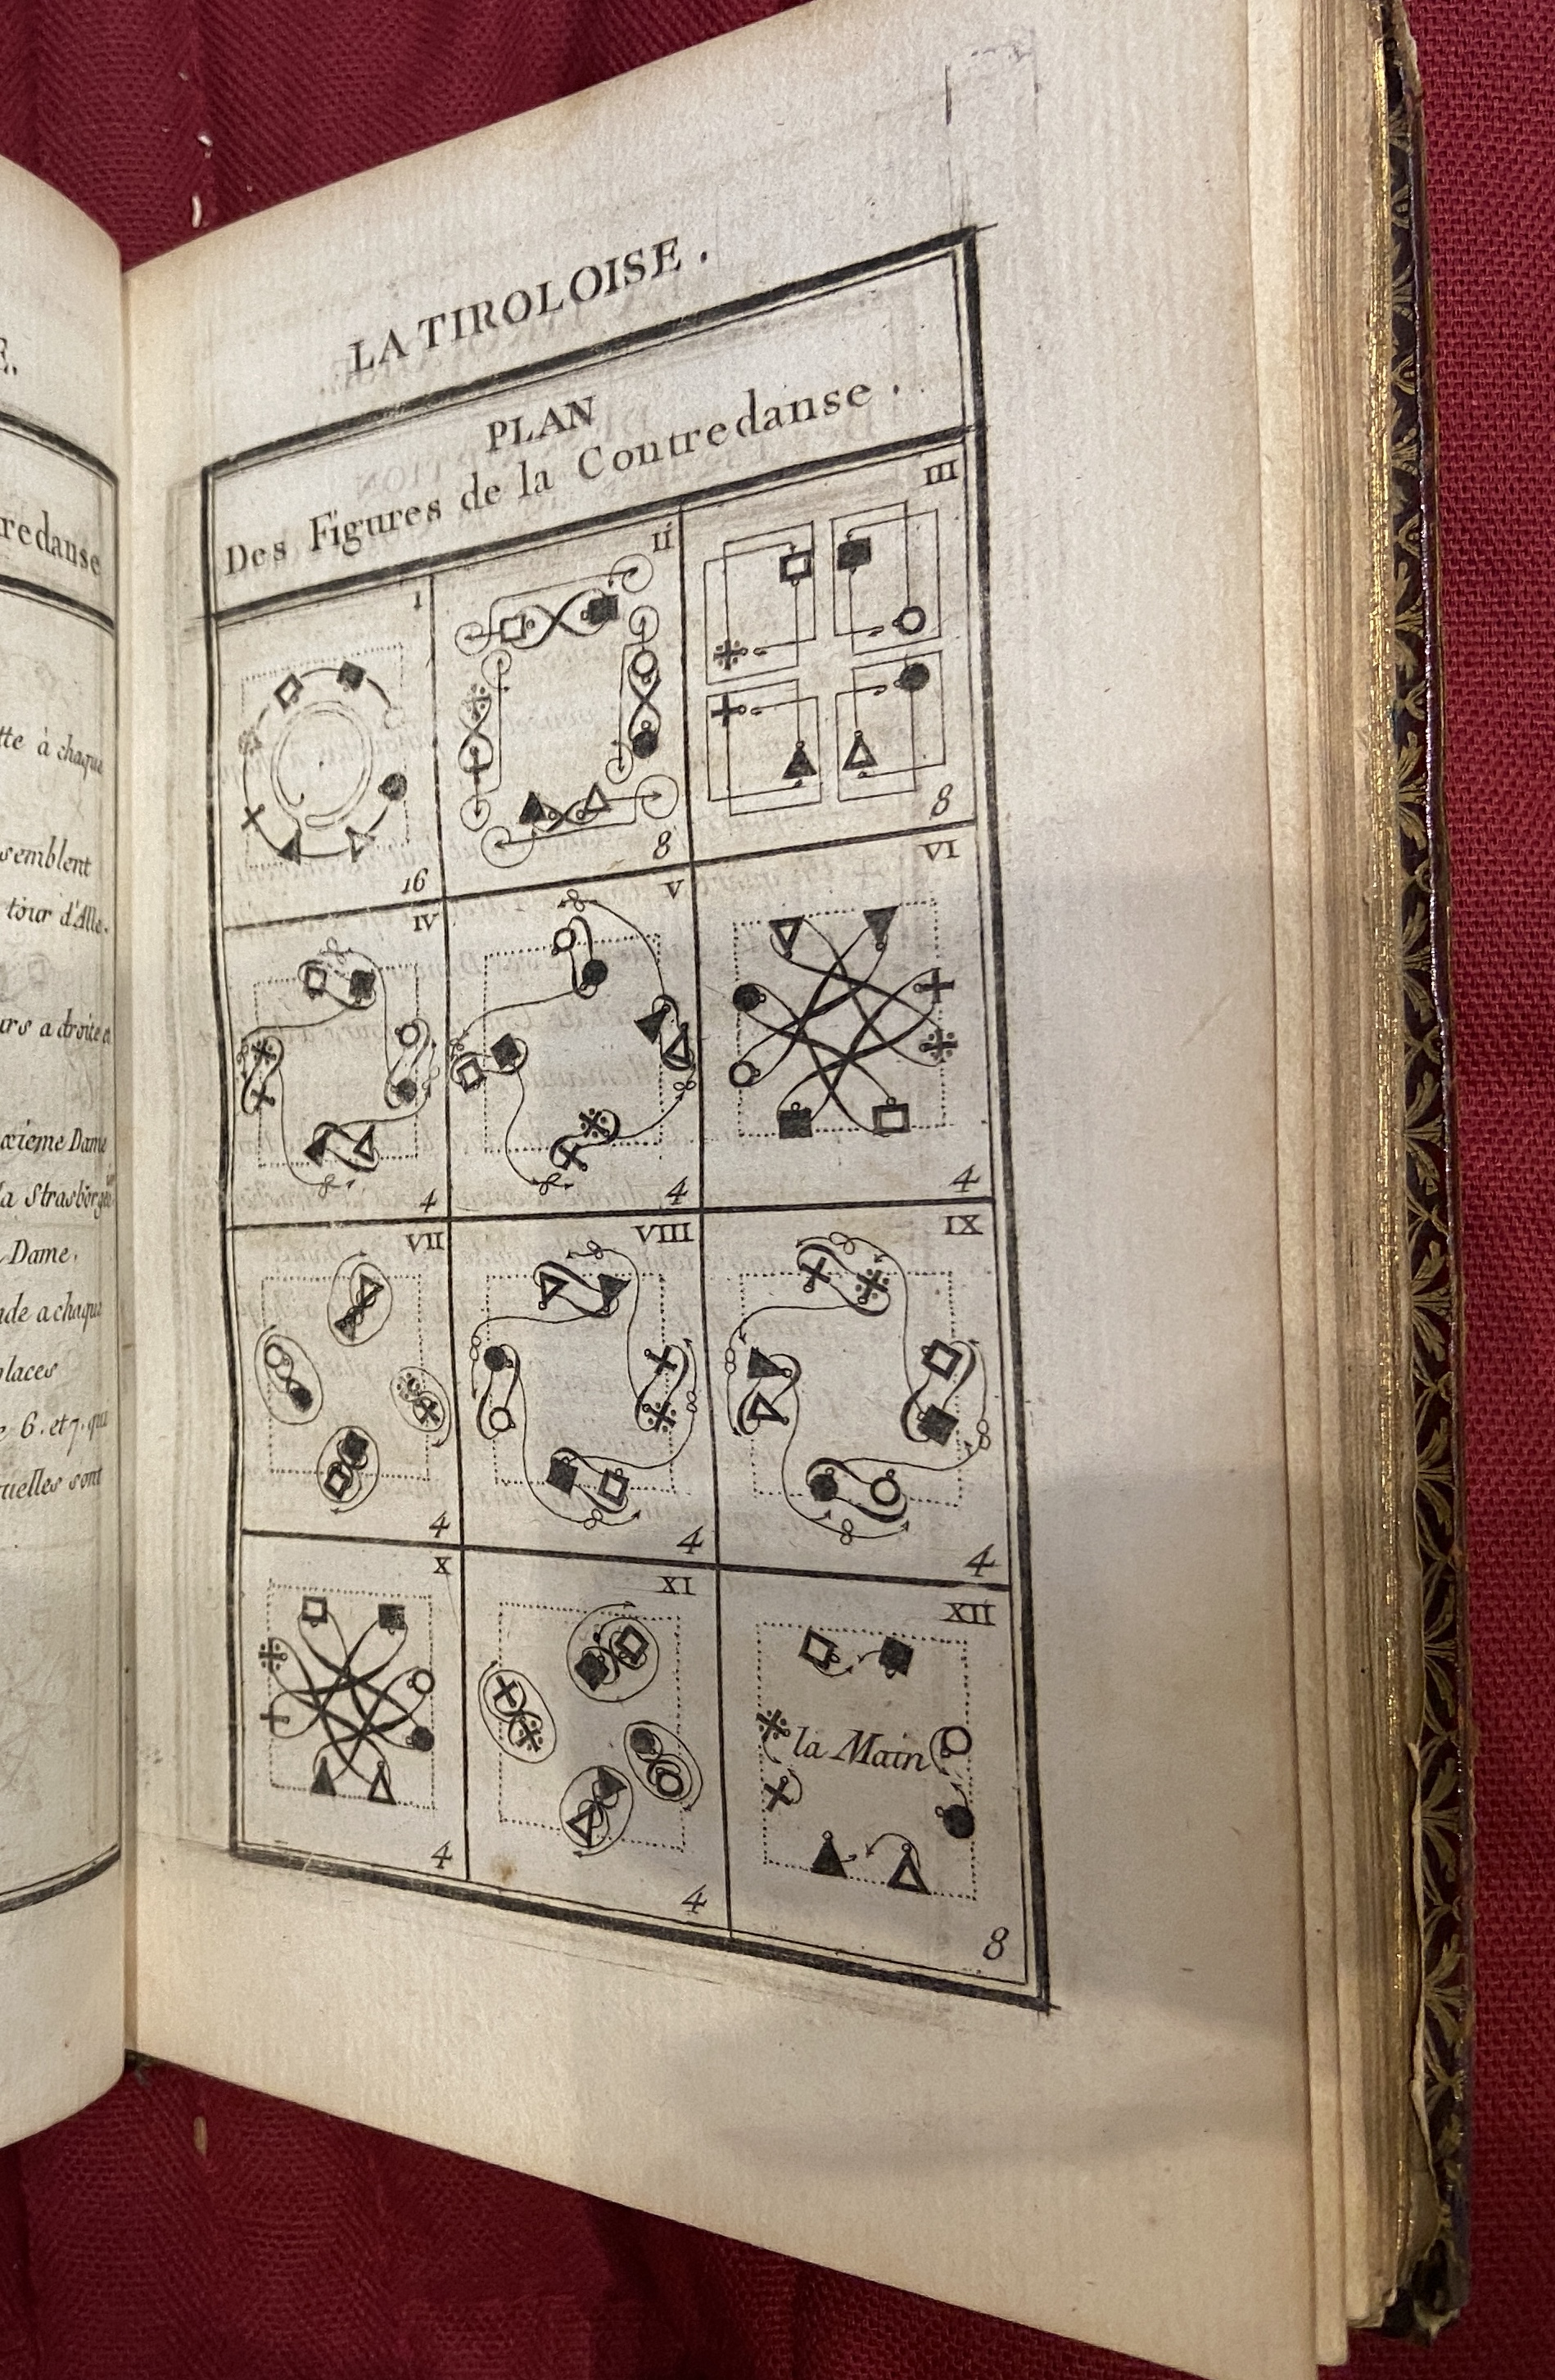 E.
redanse
tte à chaque
semblent
tour d'Alle-
urs a droite et
xieme Dame
la Strasbourg
Dame.
nde a chaque
places
6. et 7. qui
uelles sont
LA TIROLOISE.
PLAN
Des Figures de la Contredanse.
I
II
III
16
8
8
IV
V
VI
4
4
4
VII
VIII
IX
4
4
4
X
XI
XII
la Main
4
4
8